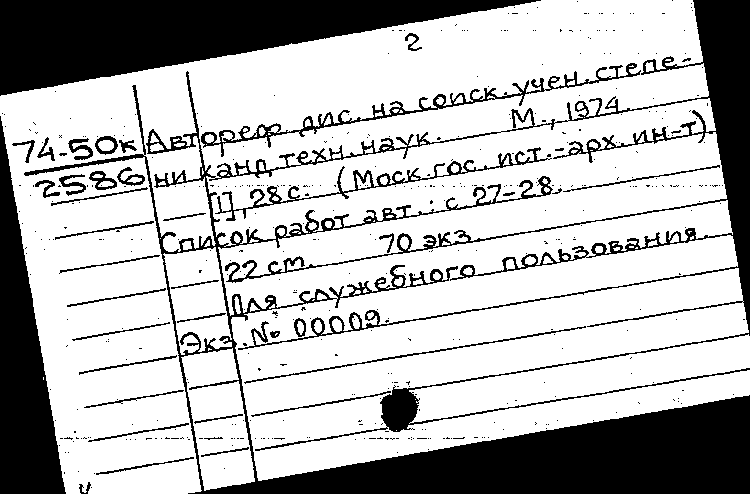 2
74-50к Автореф. дис. на соиск. учен. степе-
2586 ни канд. техн. наук. М., 1974
[1], 28 с. (Моск. гос. ист.-арх. ин-т).
Список работ авт.: с 27-28.
22 см. 70 экз.
Для служебного пользования.
Экз. № 00009.